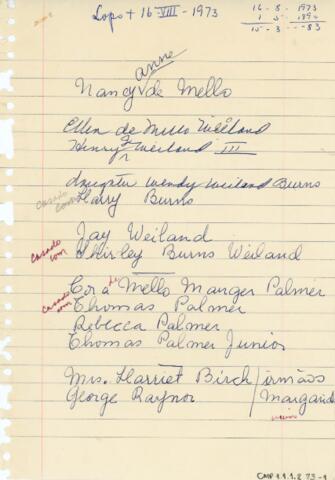 Lopo + 16-VIII-1973
16-8-1973
1-5-1890
15-3-83
anne
Nancy de Mello
Ellen de Mello Weiland
Henry Weiland III
daugter Wendy Weiland Burns
casado com
Harry Burns
Jay Weiland
casado com
Shirley Burns Weiland
Cora de Mello Manger Palmer
casado com
Thomas Palmer
Rebecca Palmer
Thomas Palmer Junior
Mrs. Harriet Birch / irmãos
George Raynor / Margarid
CMP 1.1.1.2.73-1